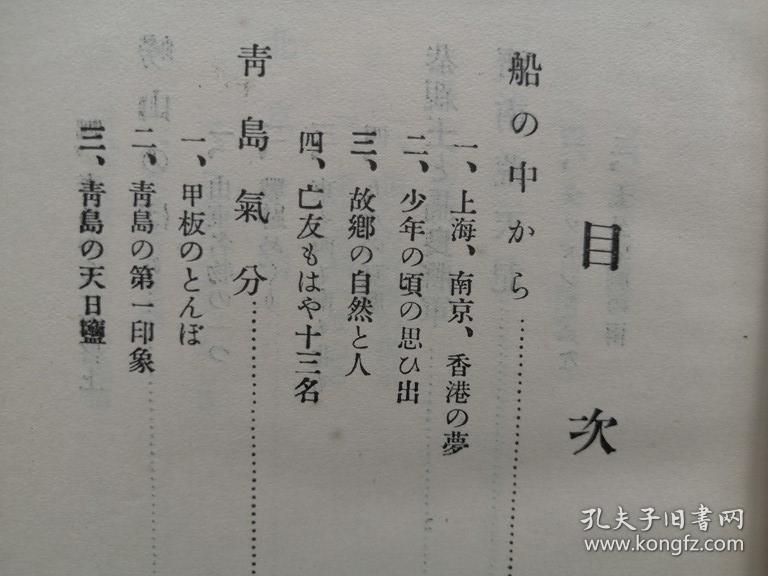 目次
船の中から
一、上海、南京、香港の夢
二、少年の頃の思ひ出
三、故鄕の自然と人
四、亡友もはや十三名
靑島氣分
一、甲板のとんぼ
二、靑島の第一印象
三、靑島の天日鹽
孔夫子旧书网
www.kongfz.com